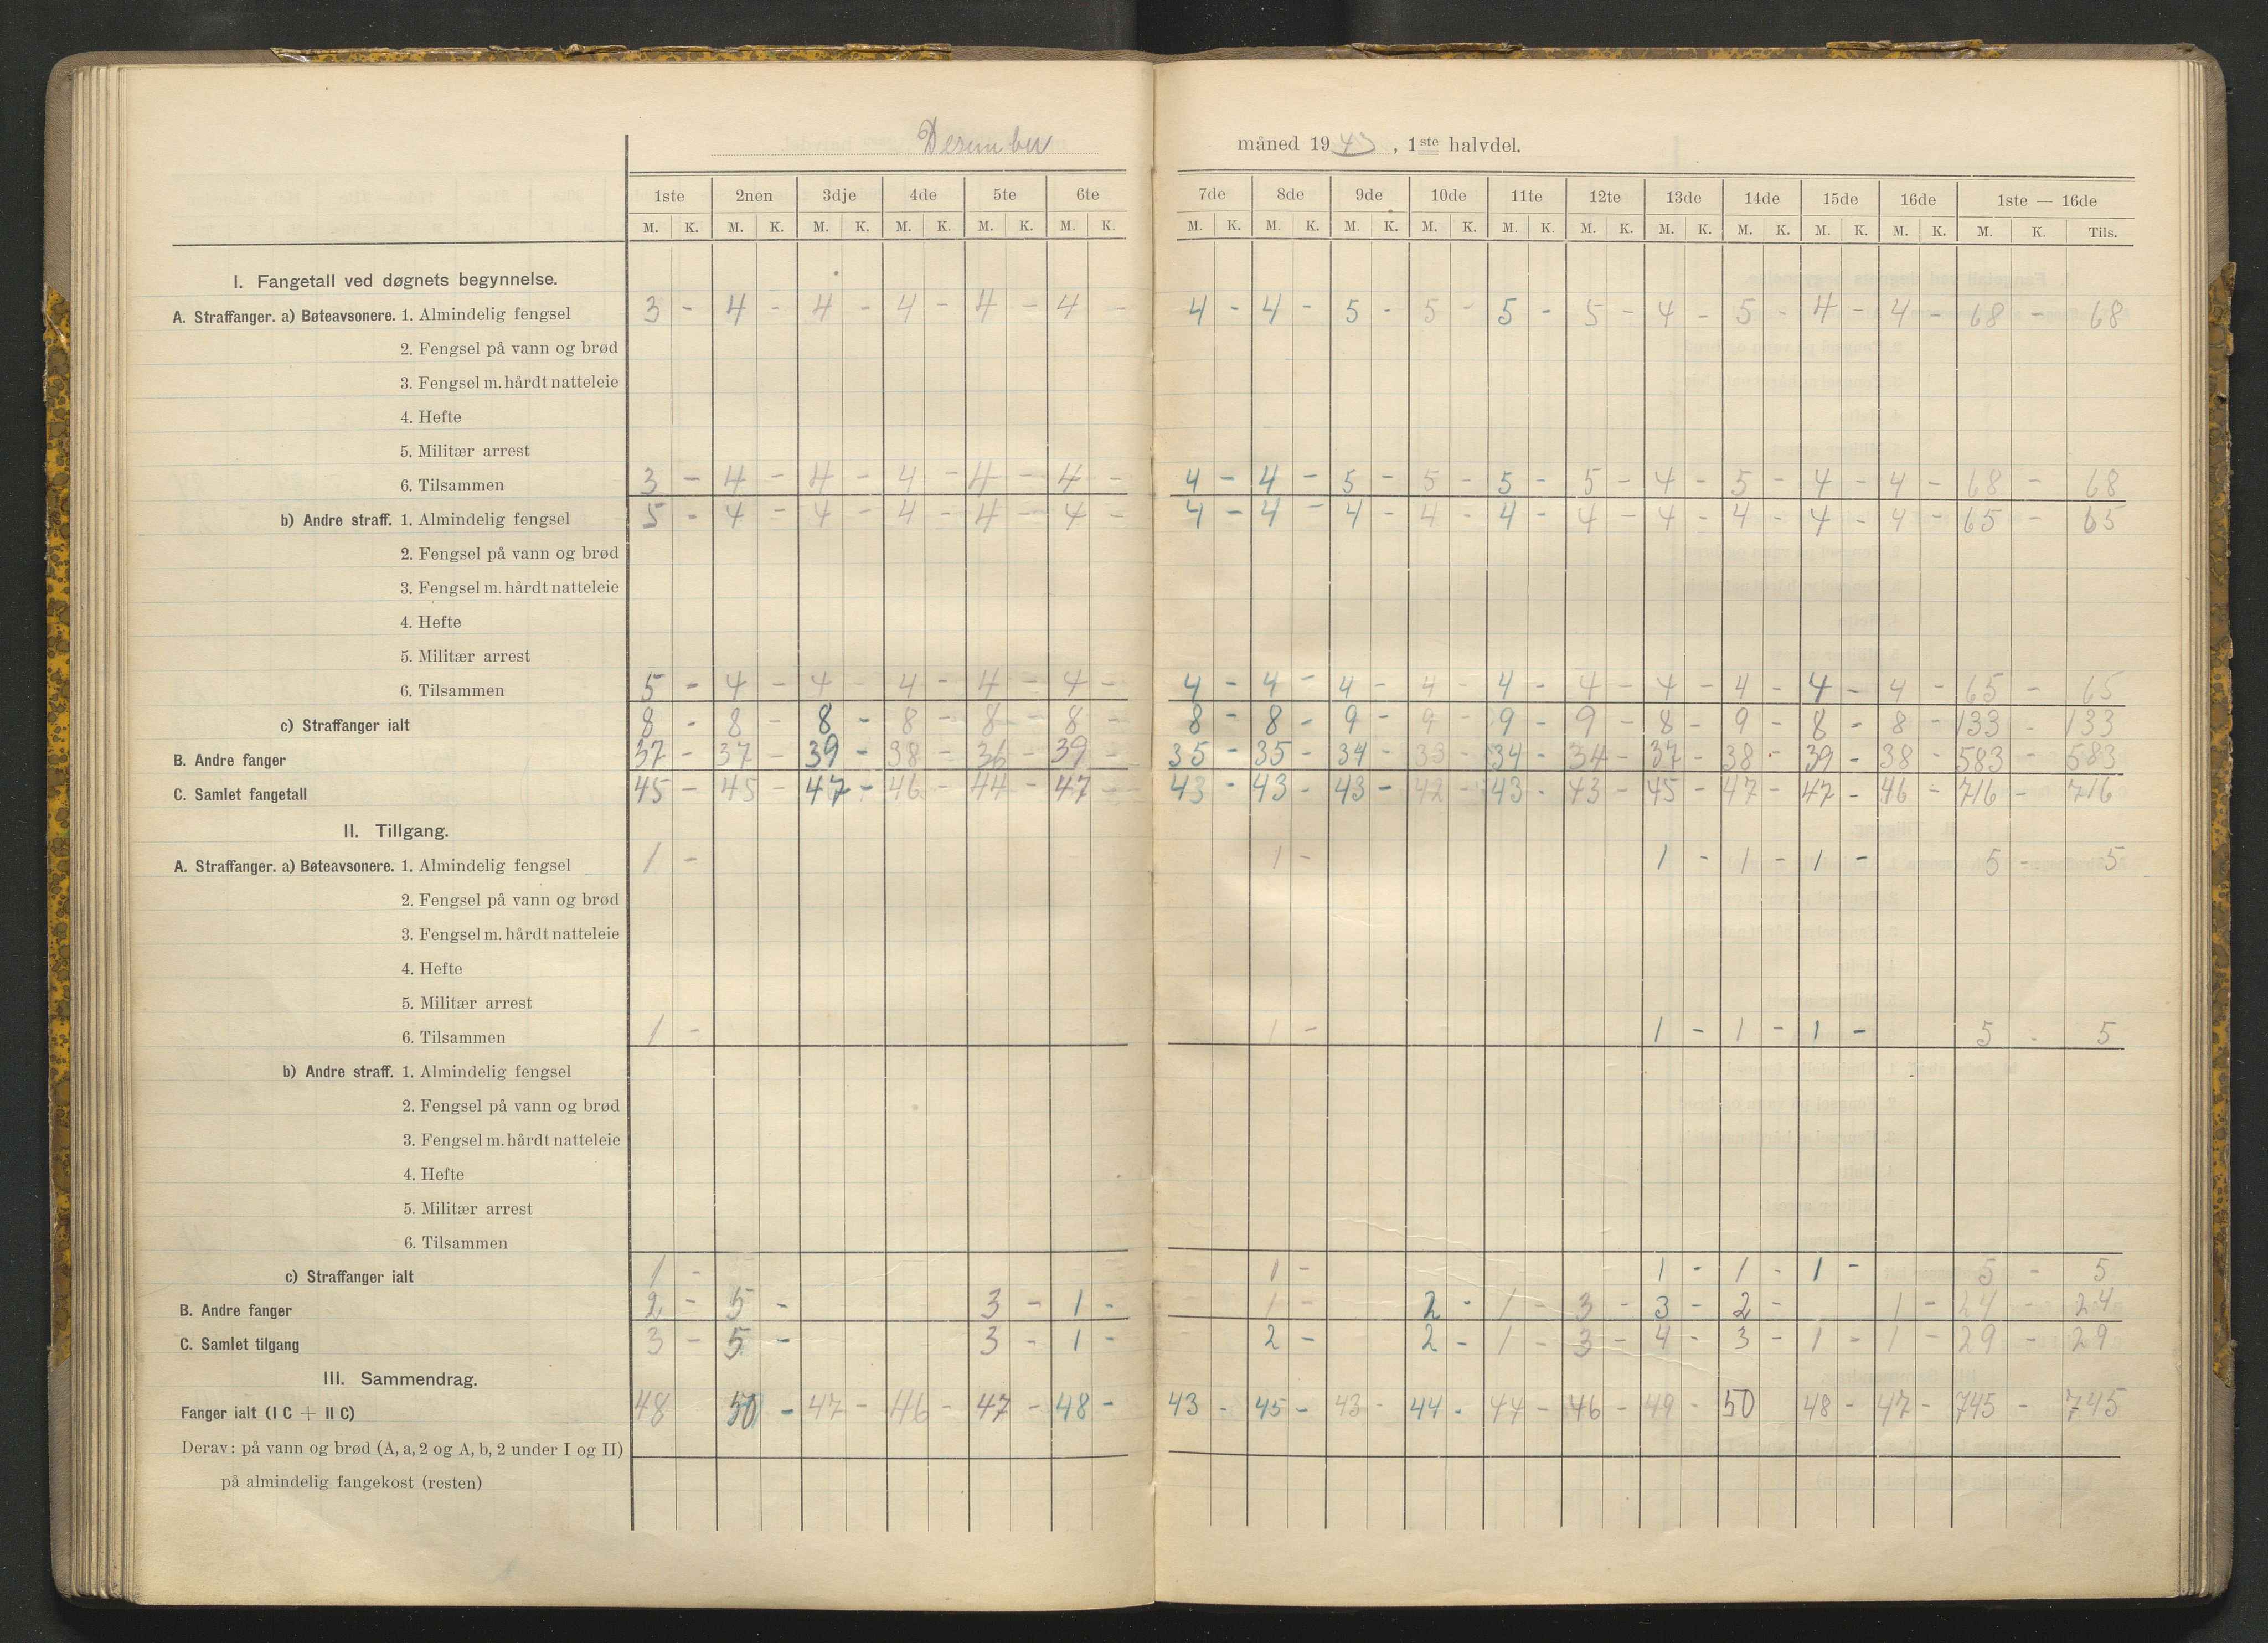 Desember måned 1943, 1ste halvdel.
1ste 2nen 3dje 4de 5te 6te 7de 8de 9de 10de 11te 12te 13de 14de 15de 16de 1ste — 16de
M. K. M. K. M. K. M. K. M. K. M. K. M. K. M. K. M. K. M. K. M. K. M. K. M. K. M. K. M. K. M. K. M. K. Tils.
I. Fangetall ved døgnets begynnelse.
A. Straffanger. a) Bøteavsonere. 1. Almindelig fengsel 3 - 4 - 4 - 4 - 4 - 4 - 4 - 4 - 5 - 5 - 5 - 5 - 4 - 5 - 4 - 4 - 68 - 68
2. Fengsel på vann og brød
3. Fengsel m. hårdt natteleie
4. Hefte
5. Militær arrest
6. Tilsammen 3 - 4 - 4 - 4 - 4 - 4 - 4 - 4 - 5 - 5 - 5 - 5 - 4 - 5 - 4 - 4 - 68 - 68
b) Andre straff. 1. Almindelig fengsel 5 - 4 - 4 - 4 - 4 - 4 - 4 - 4 - 4 - 4 - 4 - 4 - 4 - 4 - 4 - 4 - 65 - 65
2. Fengsel på vann og brød
3. Fengsel m. hårdt natteleie
4. Hefte
5. Militær arrest
6. Tilsammen 5 - 4 - 4 - 4 - 4 - 4 - 4 - 4 - 4 - 4 - 4 - 4 - 4 - 4 - 4 - 4 - 65 - 65
c) Straffanger ialt 8 - 8 - 8 - 8 - 8 - 8 - 8 - 8 - 9 - 9 - 9 - 9 - 8 - 9 - 8 - 8 - 133 - 133
B. Andre fanger 37 - 37 - 39 - 38 - 36 - 39 - 35 - 35 - 34 - 33 - 34 - 34 - 37 - 38 - 39 - 38 - 583 - 583
C. Samlet fangetall 45 - 45 - 47 - 46 - 44 - 47 - 43 - 43 - 43 - 42 - 43 - 43 - 45 - 47 - 47 - 46 - 716 - 716
II. Tillgang.
A. Straffanger. a) Bøteavsonere. 1. Almindelig fengsel 1 - 1 - 1 - 1 - 1 - 5 - 5
2. Fengsel på vann og brød
3. Fengsel m. hårdt natteleie
4. Hefte
5. Militær arrest
6. Tilsammen 1 - 1 - 1 - 1 - 1 - 5 - 5
b) Andre straff. 1. Almindelig fengsel
2. Fengsel på vann og brød
3. Fengsel m. hårdt natteleie
4. Hefte
5. Militær arrest
6. Tilsammen
c) Straffanger ialt 1 - 1 - 1 - 1 - 1 - 5 - 5
B. Andre fanger 2 - 5 - 3 - 1 - 1 - 2 - 1 - 3 - 3 - 2 - 1 - 24 - 24
C. Samlet tilgang 3 - 5 - 3 - 1 - 2 - 2 - 1 - 3 - 4 - 3 - 1 - 1 - 29 - 29
III. Sammendrag.
Fanger ialt (I C + II C) 48 50 - 47 - 46 - 47 - 48 - 43 - 45 - 43 - 44 - 44 - 46 - 49 - 50 48 - 47 - 745 - 745
Derav: på vann og brød (A, a, 2 og A, b, 2 under I og II)
på almindelig fangekost (resten)